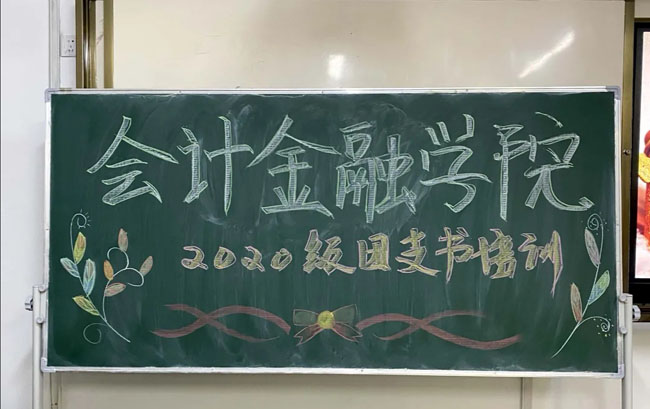 会计金融学院
2020级团支书培训